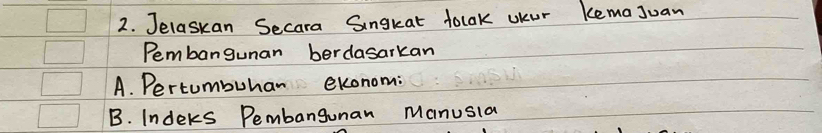 2. Jelaskan Secara Singkat tolak ukur kemajuan
Pembangunan berdasarkan
A. Pertumbuhan ekonomi
B. Indeks Pembangunan Manusia